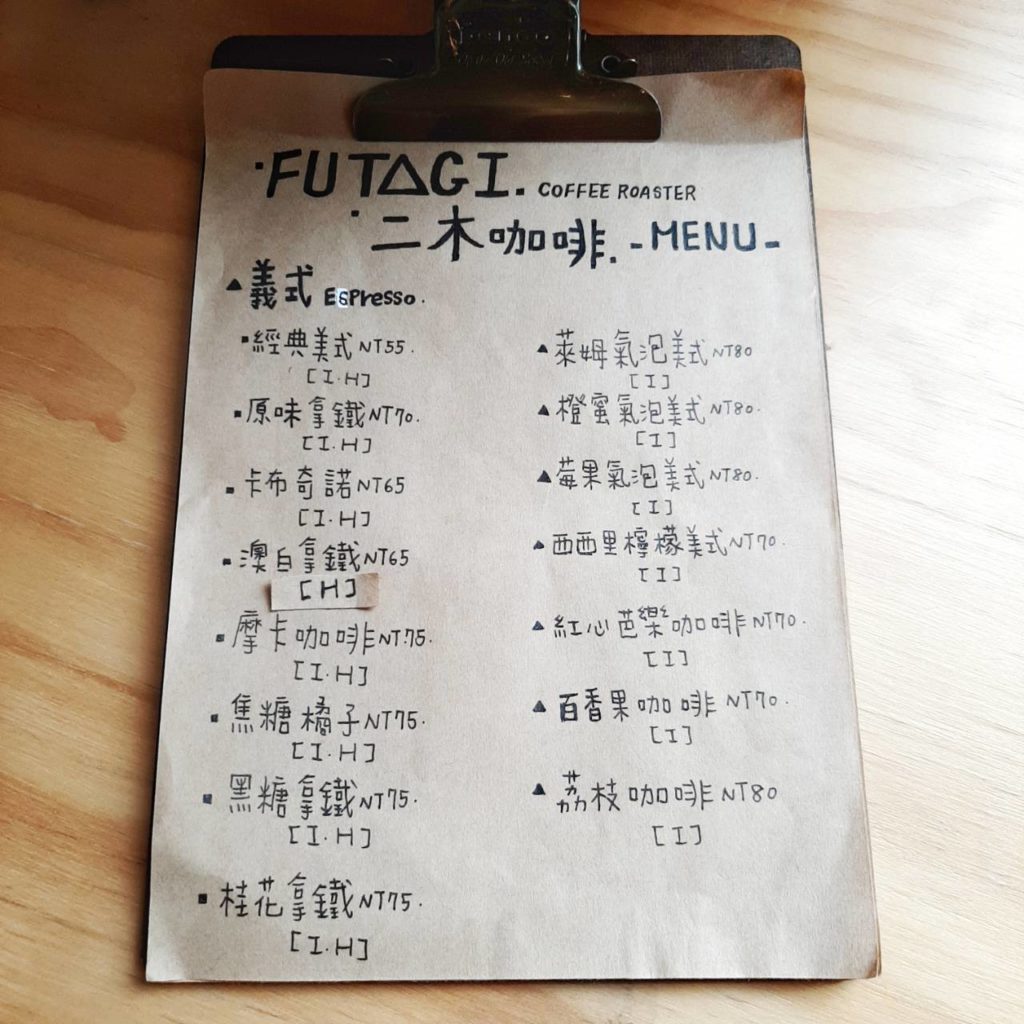 FUTAGI. COFFEE ROASTER
二木咖啡. -MENU-
義式 Espresso.
經典美式 NT55.
[I.H]
原味拿鐵 NT70.
[I.H]
卡布奇諾 NT65
[I.H]
澳白拿鐵 NT65
[H]
摩卡咖啡 NT75.
[I.H]
焦糖橘子 NT75.
[I.H]
黑糖拿鐵 NT75.
[I.H]
桂花拿鐵 NT75.
[I.H]
萊姆氣泡美式 NT80
[I]
橙蜜氣泡美式 NT80.
[I]
莓果氣泡美式 NT80.
[I]
西西里檸檬美式 NT70.
[I]
紅心芭樂咖啡 NT70.
[I]
百香果咖啡 NT70.
[I]
荔枝咖啡 NT80
[I]